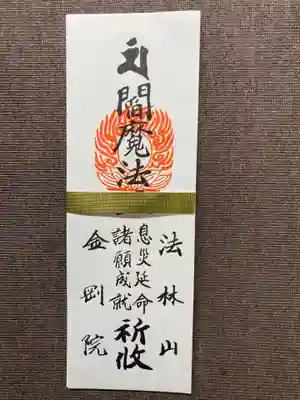 閻魔法
法林山
息災延命
諸願成就
祈攸
金剛院